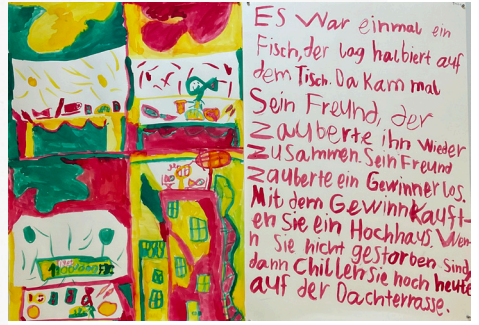 Es war einmal ein
Fisch, der lag halbiert auf
dem Tisch. Da kam mal
Sein Freund, der
zauberte ihn wieder
zusammen. Sein Freund
zauberte ein Gewinnerlos.
Mit dem Gewinn kauft-
en Sie ein Hochhaus. Wen-
n Sie nicht gestorben Sind,
dann Chillen Sie noch heute
auf der Dachterrasse.